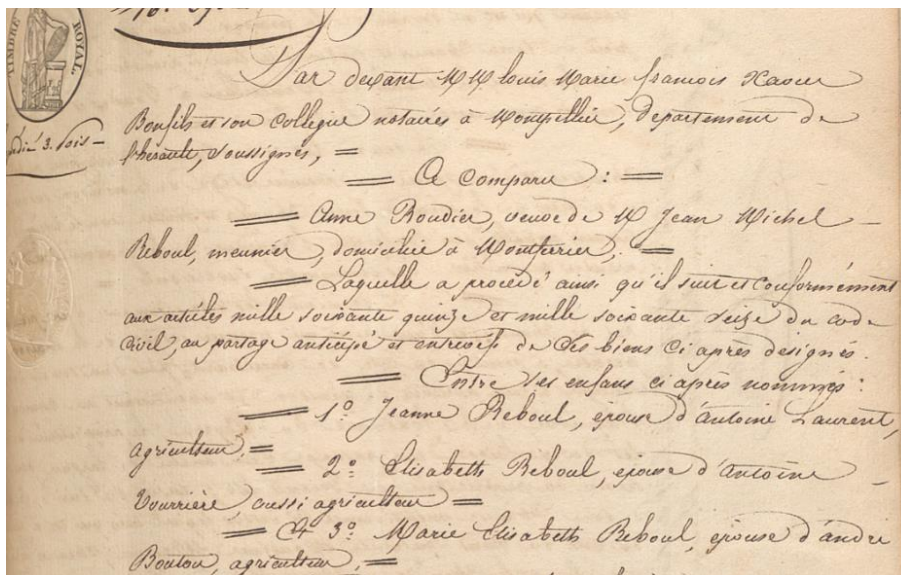 TIMBRE ROYAL.
Par devant MM louis Marie françois Xavier
Bonfils et son collègue notaires à Montpellier, département de
l'hérault, soussignés, =
= A Comparu : =
= Anne Roudier, veuve de M Jean Michel –
Reboul, meunier, domiciliée à Montferrier, =
= Laquelle a procédé ainsi qu'il suit et Conformément
aux articles mille soixante quinze et mille soixante seize du code
civil, au partage anticipé et entrevifs de ses biens ci après désignés.
= Entre ses enfans ci après nommés :
= 1º Jeanne Reboul, épouse d'antoine Laurent,
agriculteur, =
= 2º Elisabeth Reboul, épouse d'antoine –
Vourrière, aussi agriculteur =
= Et 3º Marie Elisabeth Reboul, épouse d'andré
Bouton, agriculteur, =